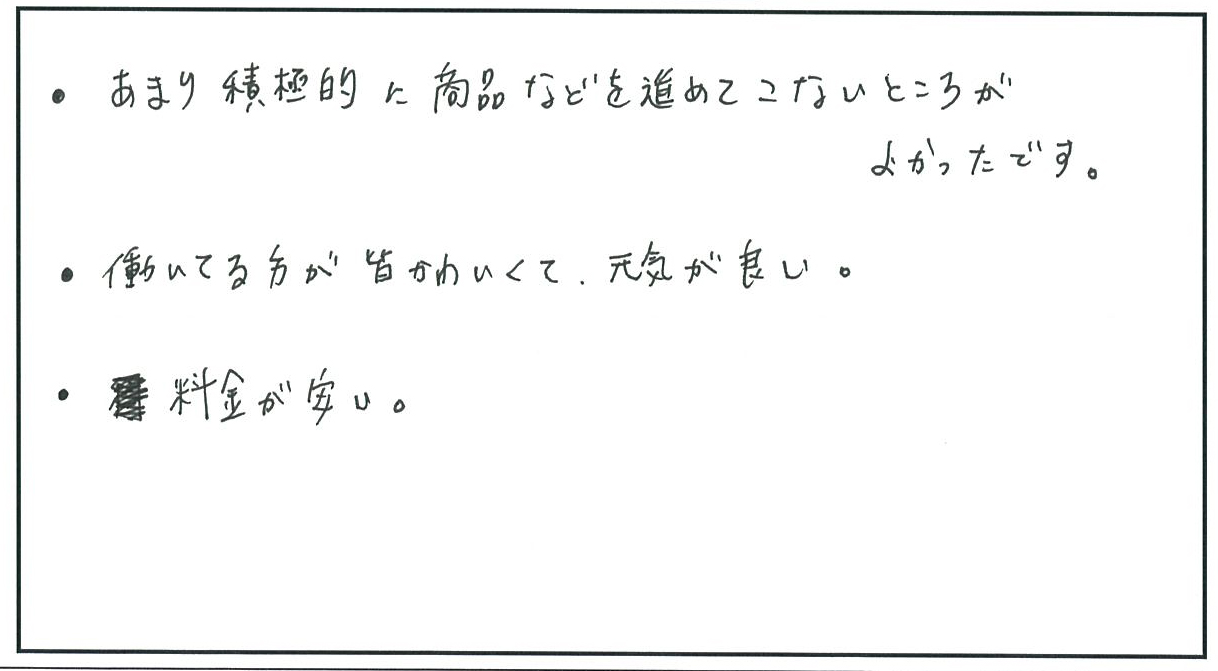 • あまり積極的に商品などを進めてこないところが
よかったです。
• 働いてる方が皆かわいくて、元気が良い。
• 料金が安い。